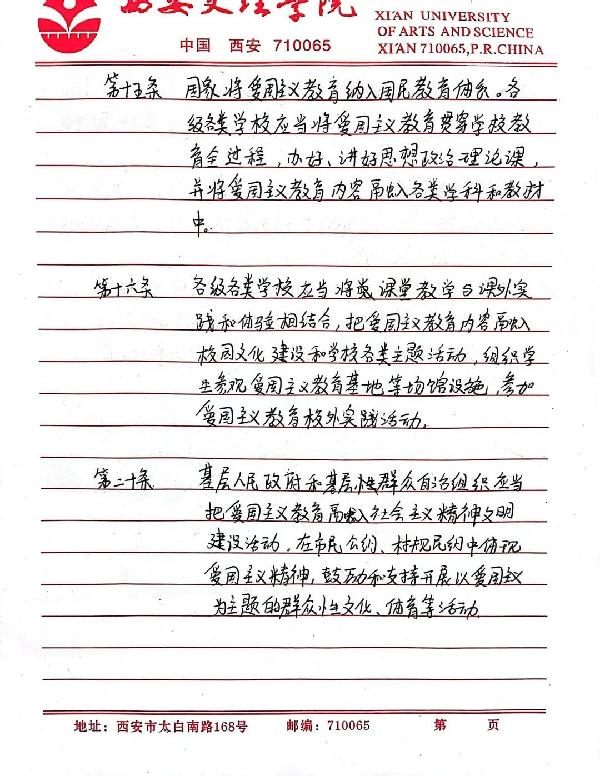 西安文理学院
XI'AN UNIVERSITY
OF ARTS AND SCIENCE
中国 西安 710065
XI'AN 710065,P.R.CHINA
第十五条 国家将爱国主义教育纳入国民教育体系。各
级各类学校应当将爱国主义教育贯穿学校教
育全过程,办好、讲好思想政治理论课,
并将爱国主义教育内容融入各类学科和教材
中。
第十六条 各级各类学校应当将课堂教学与课外实
践和体验相结合,把爱国主义教育内容融入
校园文化建设和学校各类主题活动,组织学
生参观爱国主义教育基地等场馆设施,参加
爱国主义教育校外实践活动。
第二十条 基层人民政府和基层性群众自治组织应当
把爱国主义教育融入社会主义精神文明
建设活动,在市民公约、村规民约中体现
爱国主义精神,鼓励和支持开展以爱国主义
为主题的群众性文化、体育等活动
地址:西安市太白南路168号 邮编:710065 第 页